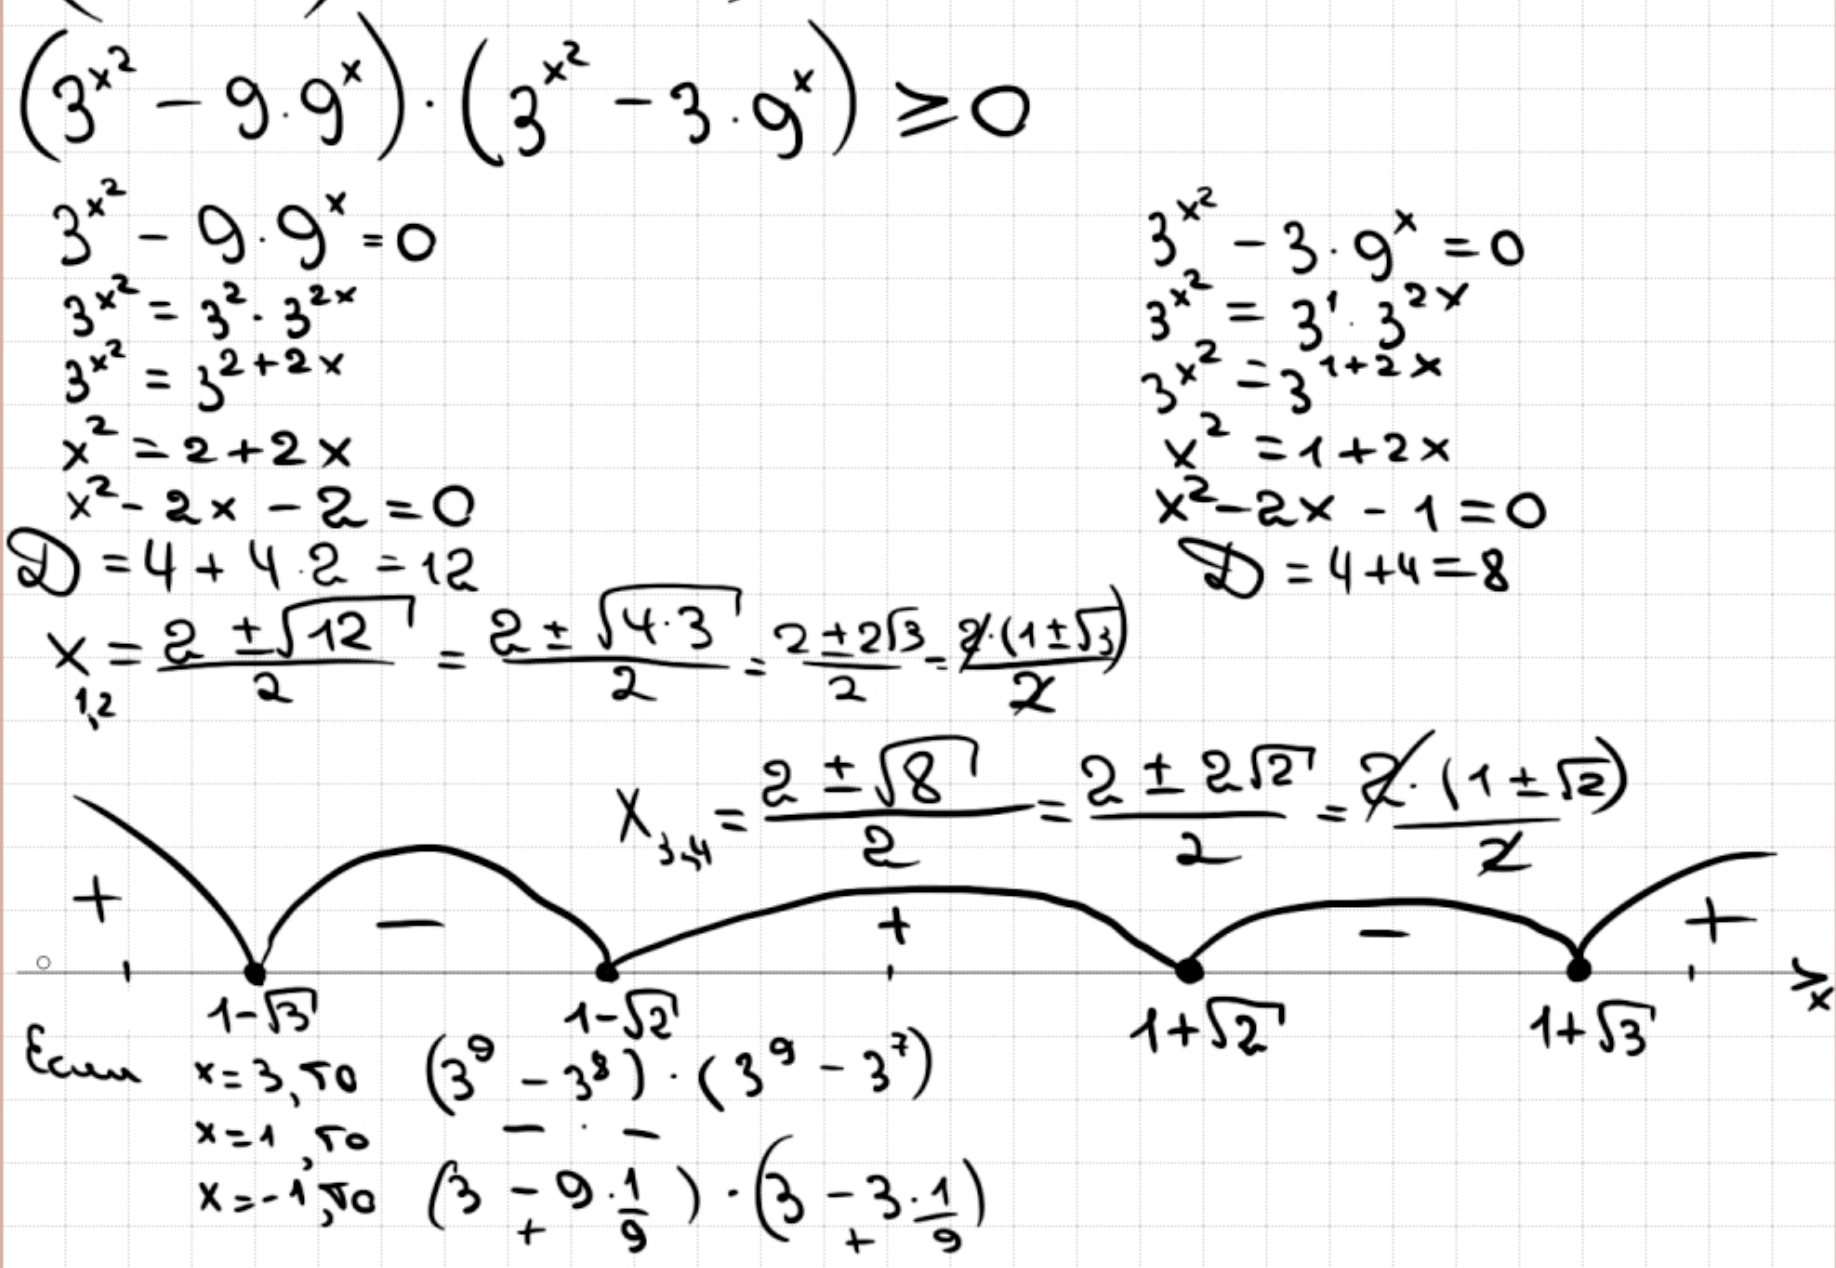 (3^{x^2} - 9·9^x)·(3^{x^2} - 3·9^x) ⩾ 0
3^{x^2} - 9·9^x = 0
3^{x^2} = 3^2·3^{2x}
3^{x^2} = 3^{2+2x}
x^2 = 2+2x
x^2 - 2x - 2 = 0
D = 4 + 4·2 = 12
x_{1,2} = \frac{2 ± √12}{2} = \frac{2 ± √(4·3)}{2} = \frac{2 ± 2√3}{2} = \frac{2·(1 ± √3)}{2}
3^{x^2} - 3·9^x = 0
3^{x^2} = 3^1·3^{2x}
3^{x^2} = 3^{1+2x}
x^2 = 1+2x
x^2 - 2x - 1 = 0
D = 4+4 = 8
x_{3,4} = \frac{2 ± √8}{2} = \frac{2 ± 2√2}{2} = \frac{2·(1 ± √2)}{2}
+ − + − +
1-√3 1-√2 1+√2 1+√3 x
Если x=3, то (3^9 - 3^8)·(3^9 - 3^7)
x=1, то − · −
x=-1, то (3 - 9·\frac{1}{9})·(3 - 3·\frac{1}{9})
+ +